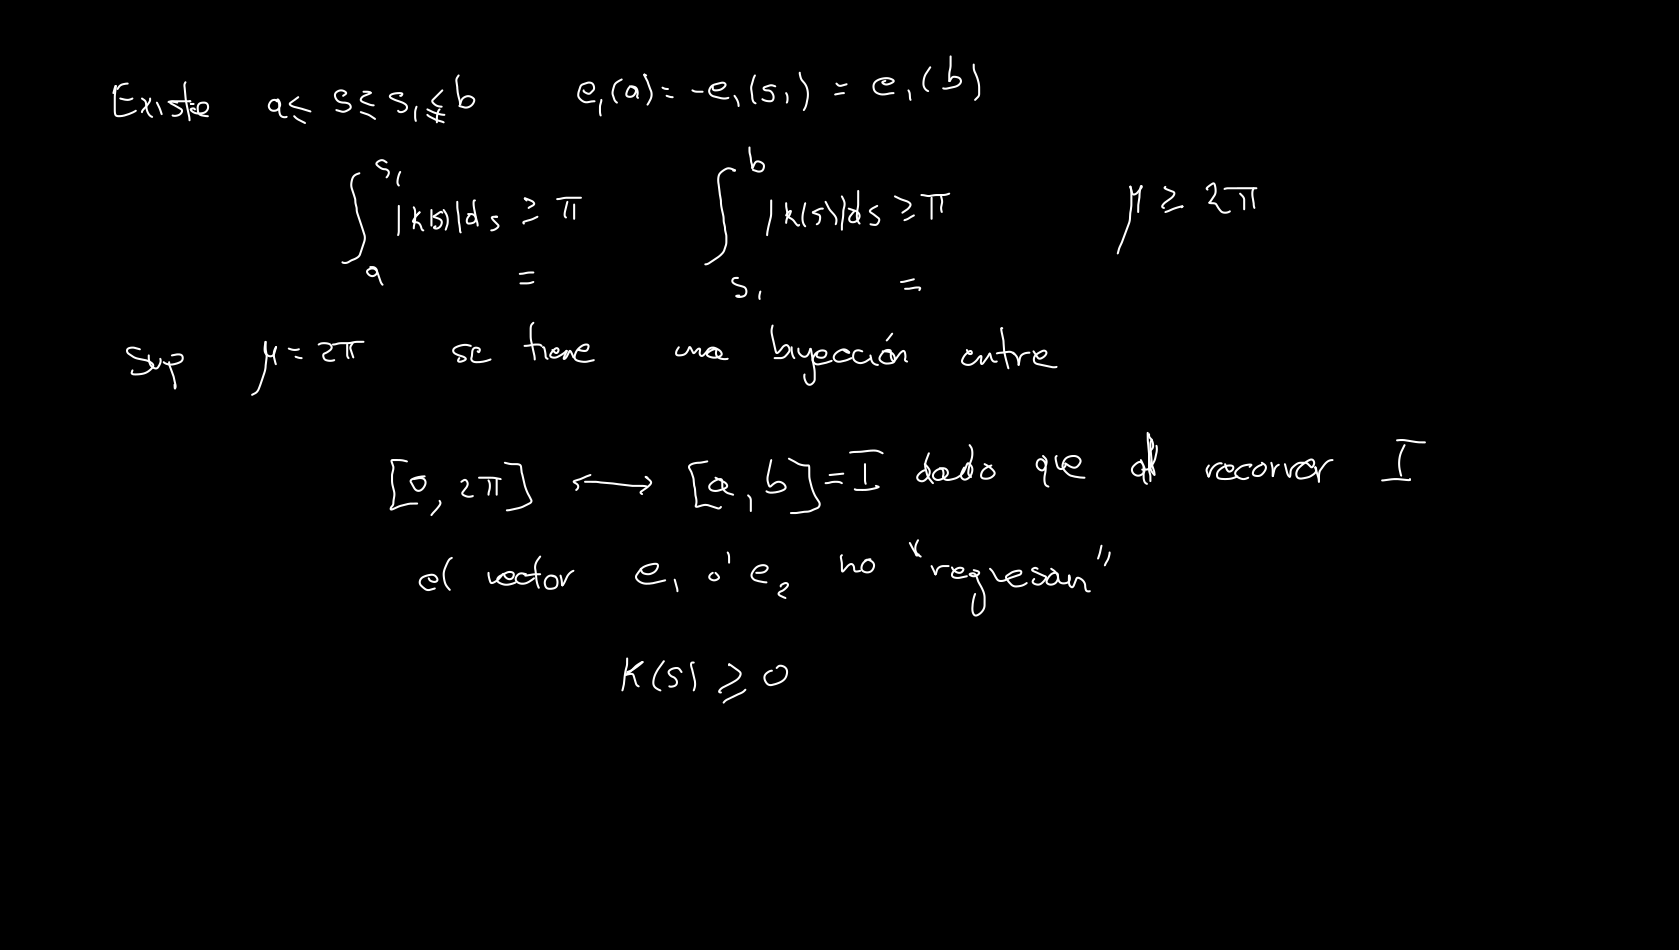 Existe a ≤ s ≤ s₁ ≤ b e₁(a) = -e₁(s₁) = e₁(b)
∫ₐ^{s₁} |k(s)|ds ≥ π ∫_{s₁}^{b} |k(s)|ds ≥ π μ ≥ 2π
= =
Sup μ = 2π se tiene una biyección entre
[0, 2π] ⟷ [a, b] = I dado que al recorrer I
el vector e₁ ó e₂ no "regresan"
K(s) ≥ 0